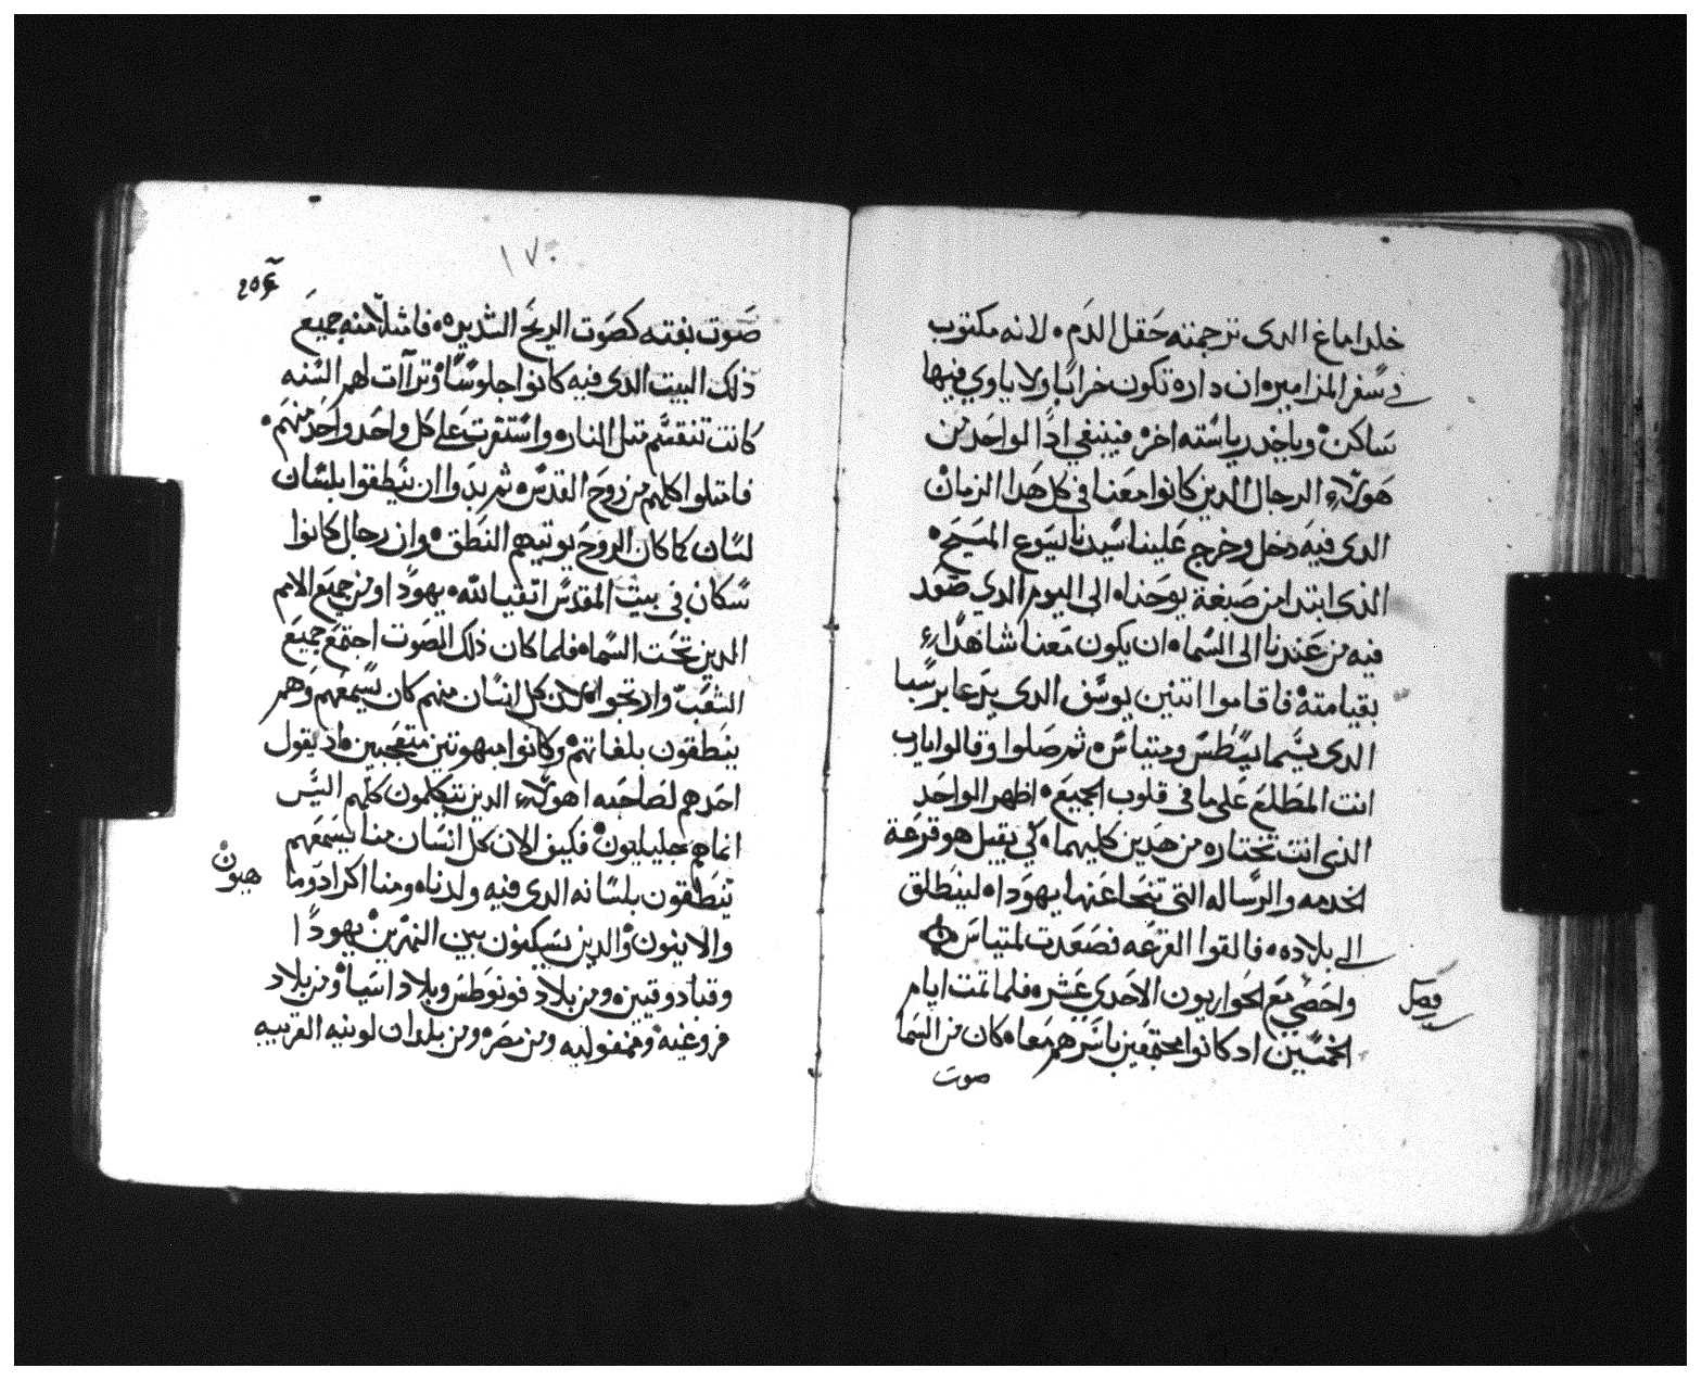 خلدا ماغ الدى ترجمته حَقل الدَم ۰ لانه مكتوب
في سفر المزاميره ان داره تكون خرابًا ولا ياوي فيها
سَاكنْ وياخد رياسته اخرْ فينبغي ادًا لواحَد من
هَولآءِ الرجال الدين كانوا معَنا فى كل هَدا الزمانْ
الدى فيه دخل وخرج عَلينا سَيدنا يسَوع المسَيحَ ۰
الذى ابتدا من صَبغة يوحَنا ه الى اليوم الدي صَعَد
فيه من عَندنا الى السَماه ان يكون مَعنا شاهدًاءِ
بقيامتهْ فاقاموا اتنين يوسَف الدى يدَعا برسَبا
الدى يسَما يسَطسَ ومتياسَ ه ثم صَلوا وقالوا يارب
انت المطَلعَ عَلى ما فى قلوب الجميعَ ۰ اظهر الواحَد
الذى انت تختاره من هدين كليهما ه كي يقبل هو قرعَة
الخدمه والرسَاله التى تنحَا عَنها يهوَدا ه لينطَلق
الى بلاده ۰ فالقوا القرعَه فصَعَدت لمتياسَ
فصَل
واحَصَي مَع الحَواريون الاحَدى عَشره فلما تمت ايام
الخمسَين اد كانوا مجتمعَين باسَرهم مَعا ه كان من السَما
صوت
١٧٠
صَوت بغته كصَوت الريحَ الشديده ۰ فامتلا منه جميعَ
ذلك البيت الدى فيه كانوا جلوسًا وْترآات لهم السَنه
كانت تنقسَم متل الناره واسَتقرت عَلى كل واحَد واحَد منهَم ۰
فامتلوا كلهم من روحَ القدسَ ه ثم بدَوا ان ينطَقوا بلسَان
لسَان كما كان الروحَ يوتيهم النطَق ه وان رجال كانوا
سَكان في بيت المقدسَ اتقيا لله ۰ يهودًا ومن جميعَ الامم
الدين تحَت السَماه فلما كان ذلك الصَوت اجتمعَ جميعَ
الشعَب وارتجوا لان كل انسَان منهم كان يسَمعَهم وَهم
ينطَقون بلغاتهمْ وكانوا مبهوتين متعَجبين ه اد يقول
احَدهم لصَاحَبه اهولآءِ الدين يتكلمون كلهم اليسَ
انما هم جليليونْ فكيف الان كل انسَان منا يسَمعَهم
ينطَقون بلسَانه الدى فيه ولدناه ومنا اكرادَ وما
هيونْ
والاينونْ وْالدين يسَكنون بين النهرينْ يهودًا
وقبادوقيين ه ومن بلاد فونوطَسَ وبلاد اسَيا ه ومن بلاد
فروغيه ۰ وممفوليه ومن مصَره ومن بلدان لوبيه القريبه